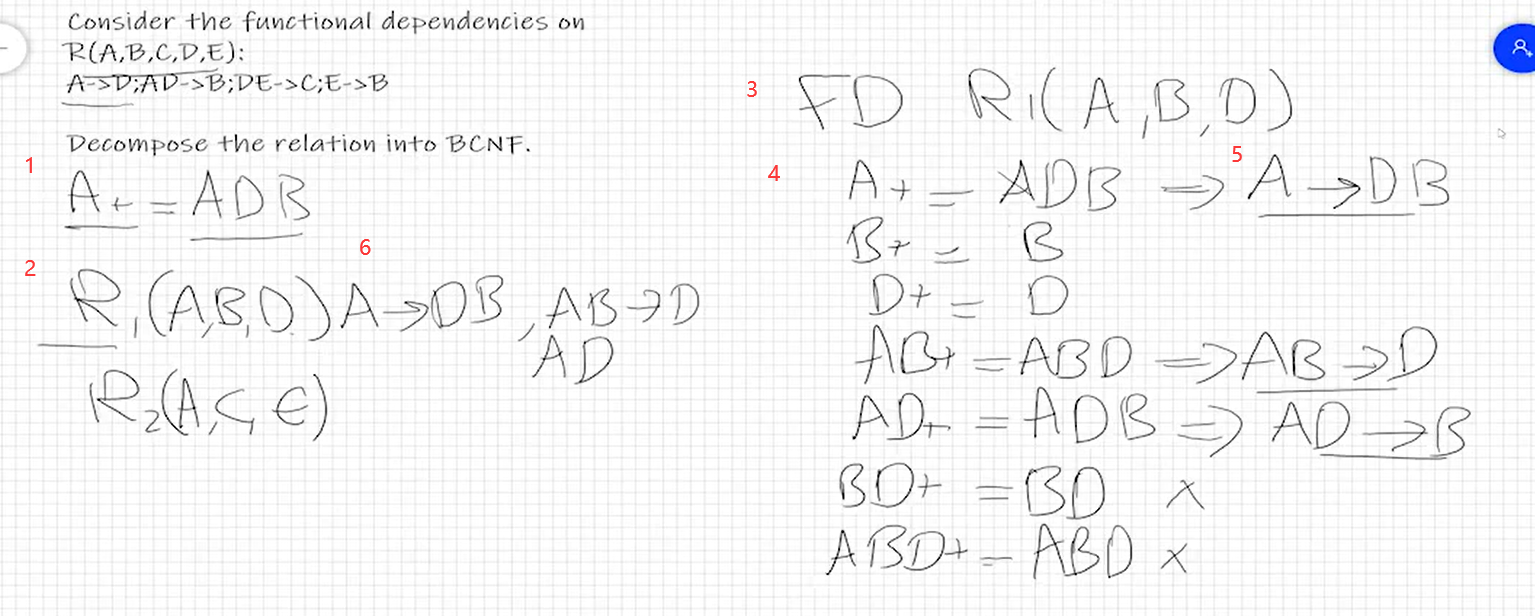 Consider the functional dependencies on
R(A,B,C,D,E):
A->D;AD->B;DE->C;E->B
Decompose the relation into BCNF.
1
A+ = ADB
2
6
R1(A,B,D) A→DB, AB→D
AD
R2(A,C,E)
3
FD R1(A,B,D)
4
5
A+ = ADB ⇒ A→DB
B+ = B
D+ = D
AB+ = ABD ⇒ AB→D
AD+ = ADB ⇒ AD→B
BD+ = BD ×
ABD+ = ABD ×